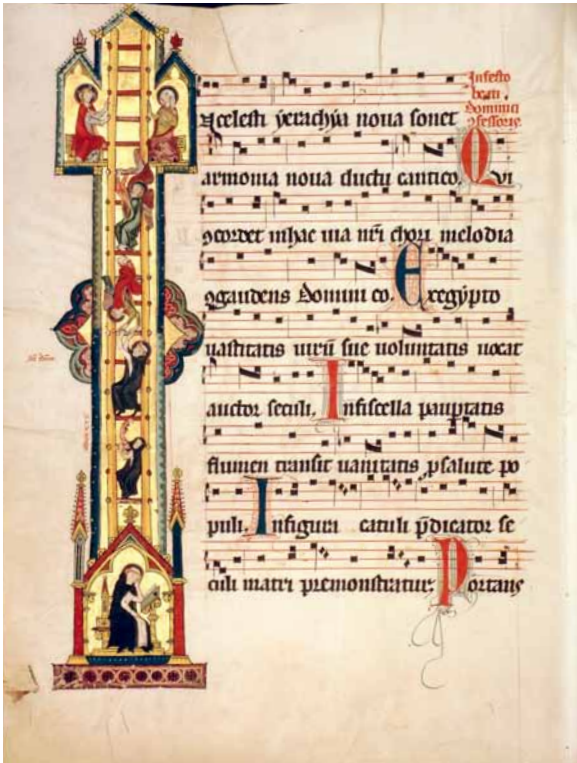 In festo
beati
Dominici
ꝯfessoris
N celesti yerarchya noua sonet
armonia noua ductu cantico. Qvi
ꝯcordet in hac uia nr̄i chori melodia
ꝯgaudens Domini co. Ex egypto
uastitatis uirū sue uoluntatis uocat
auctor seculi. In fiscella paup̱tatis
flumen transit uanitatis ꝓ salute po
puli. In figura catuli p̄dicator se
culi matri premonstratur. Portans